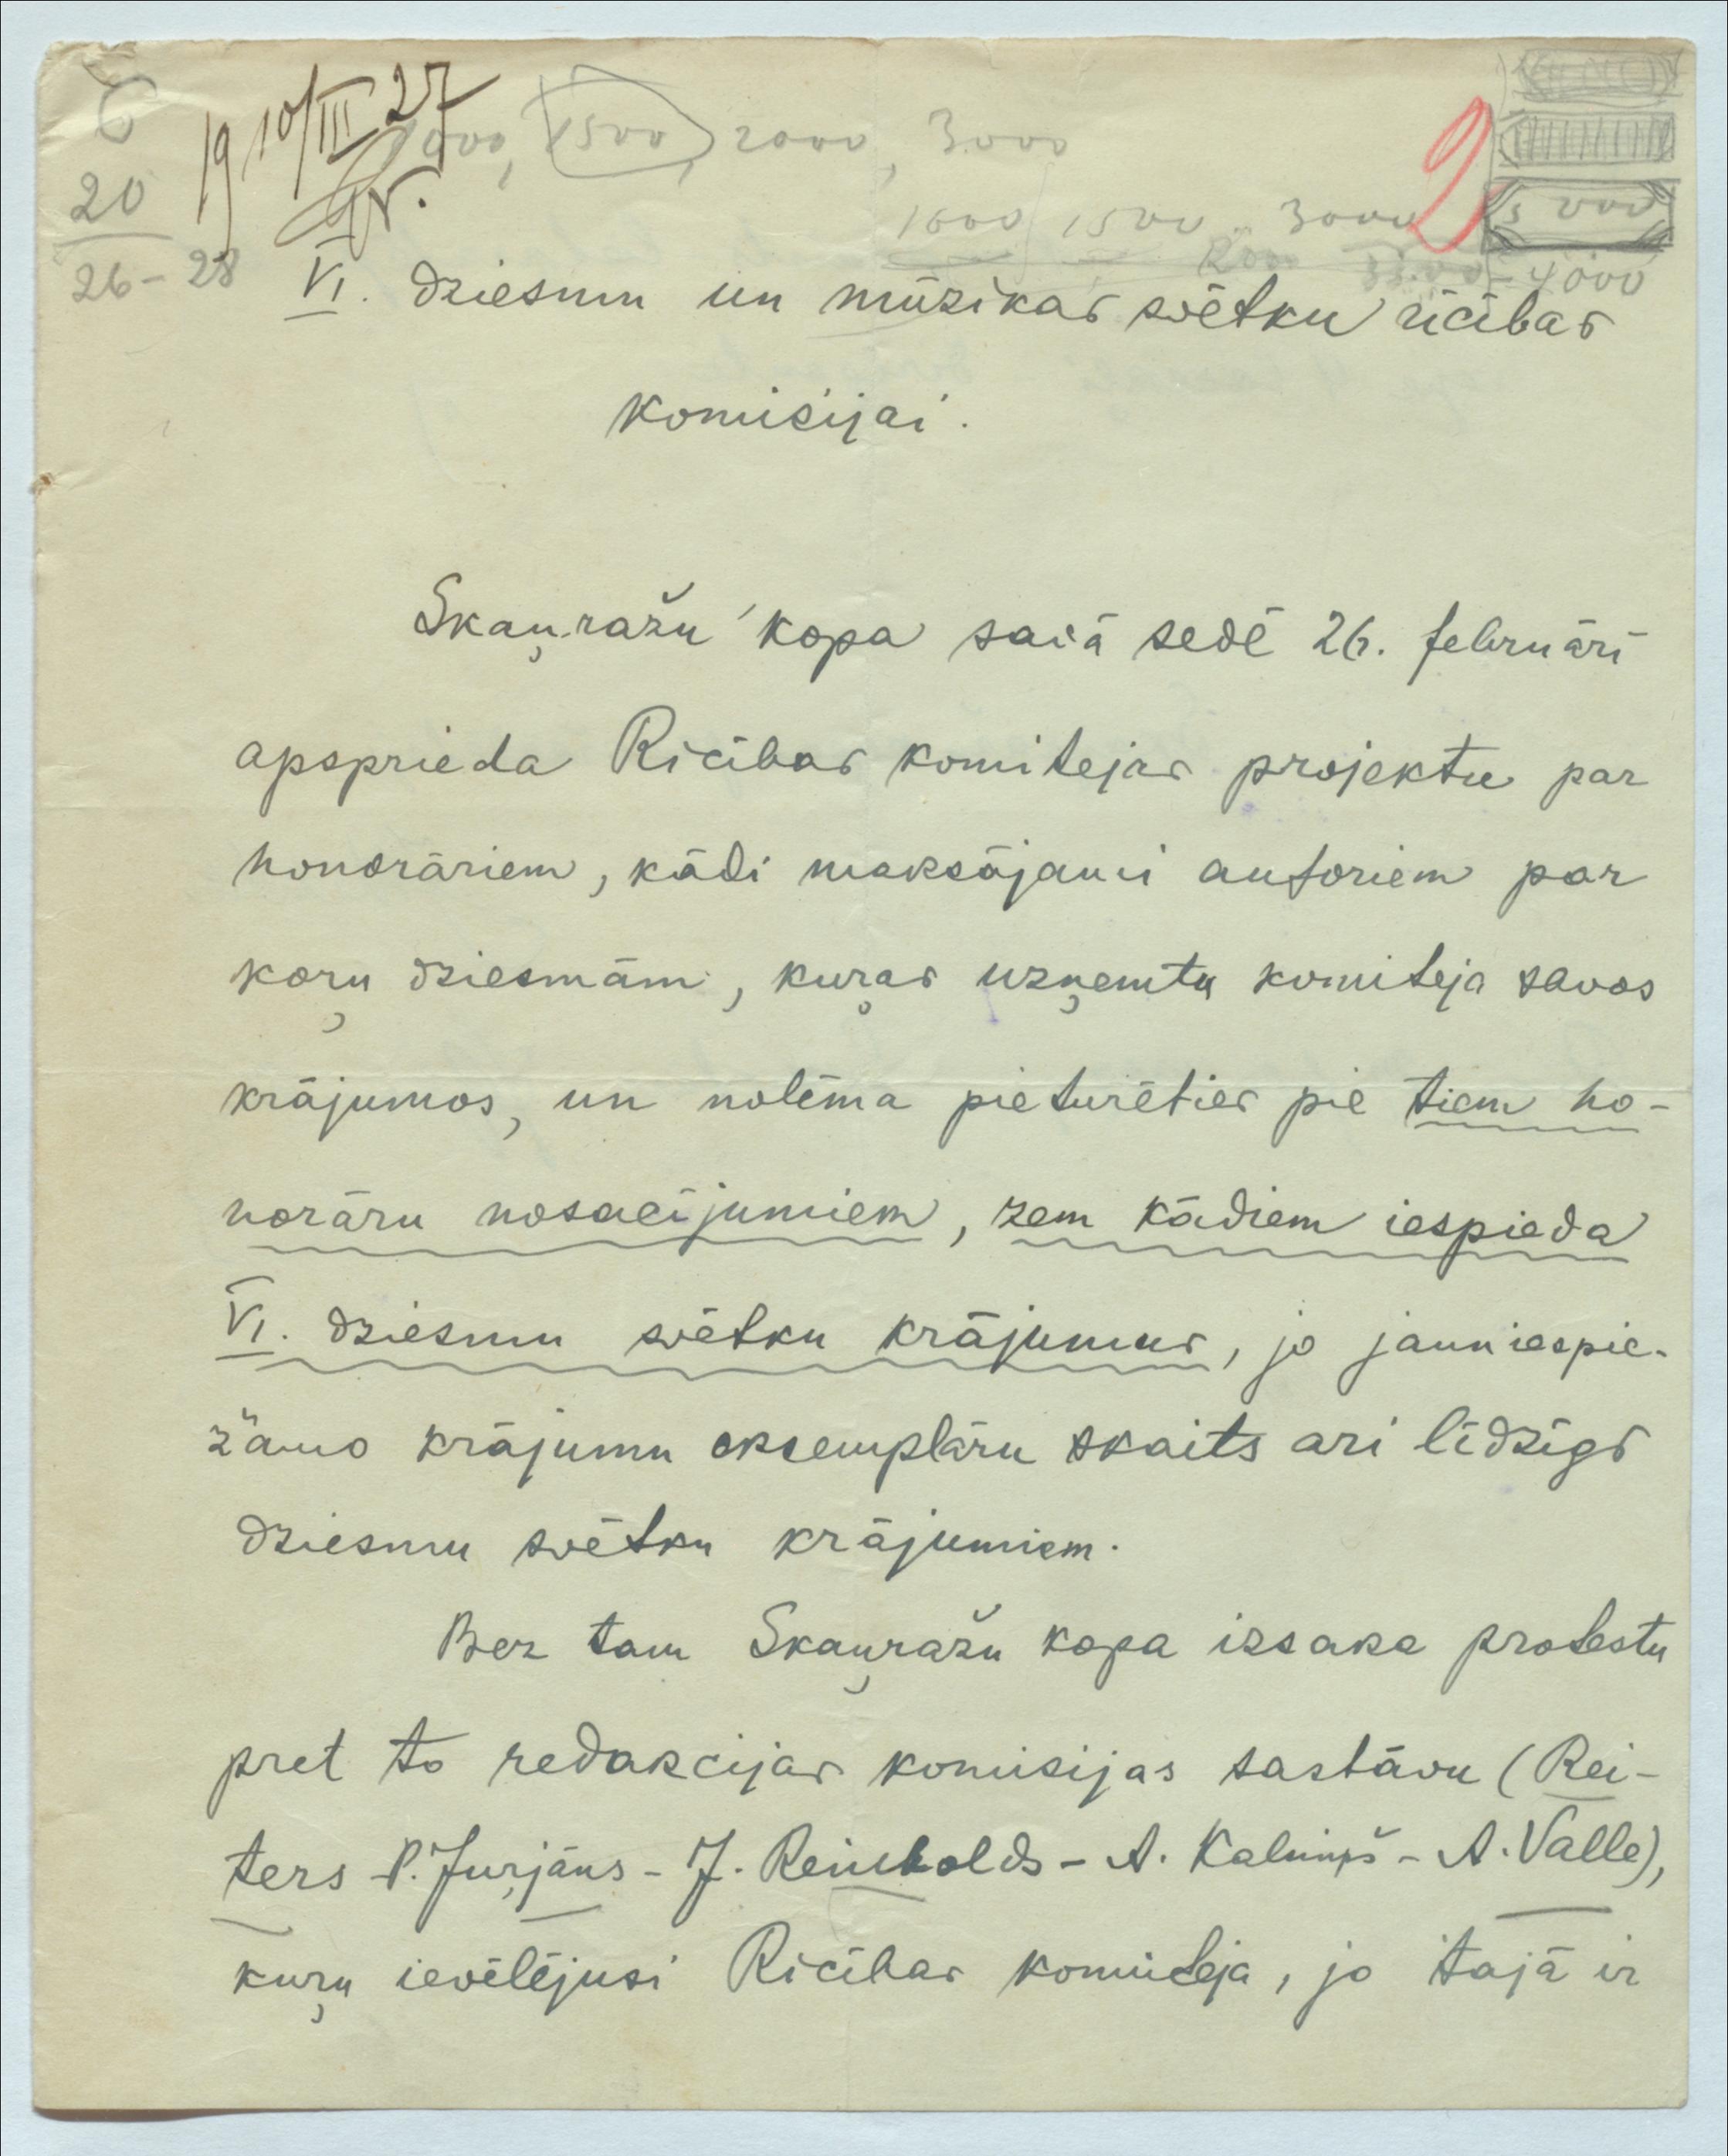 6
20
26 - 28
19 10/III 27
1000, 1500, 2000, 3000
2
1000 1500 3000
5000
2000 4000
VI. dziesmu un mūzikas svētku rīcības
komisijai.
Skaņražu kopa savā sēdē 26. februārī
apsprieda Rīcības komitejas projektu par
honorāriem, kādi maksājami autoriem par
koŗu dziesmām, kuŗas uzņemtu komiteja savos
krājumos, un nolēma pieturēties pie tiem ho-
norāru nosacījumiem, zem kādiem iespieda
VI. dziesmu svētku krājumus, jo jauniespie-
žamo krājumu eksemplāru skaits ari līdzīgs
dziesmu svētku krājumiem.
Bez tam Skaņražu kopa izsaka protestu
pret to redakcijas komisijas sastāvu (Rei-
ters - P. Juŗjāns - J. Reinholds - A. Kalniņš - A. Valle),
kuŗu ievēlējusi Rīcības komiteja, jo tajā ir